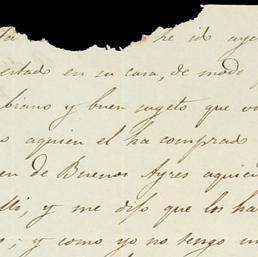 he id aye
ertad en su casa, de mode
biano y buen sugeto que v
o aquien el ha comprado
en de Buenos Ayres aquie
lli, y me dijo que los ha
s; y como yo no tengo m